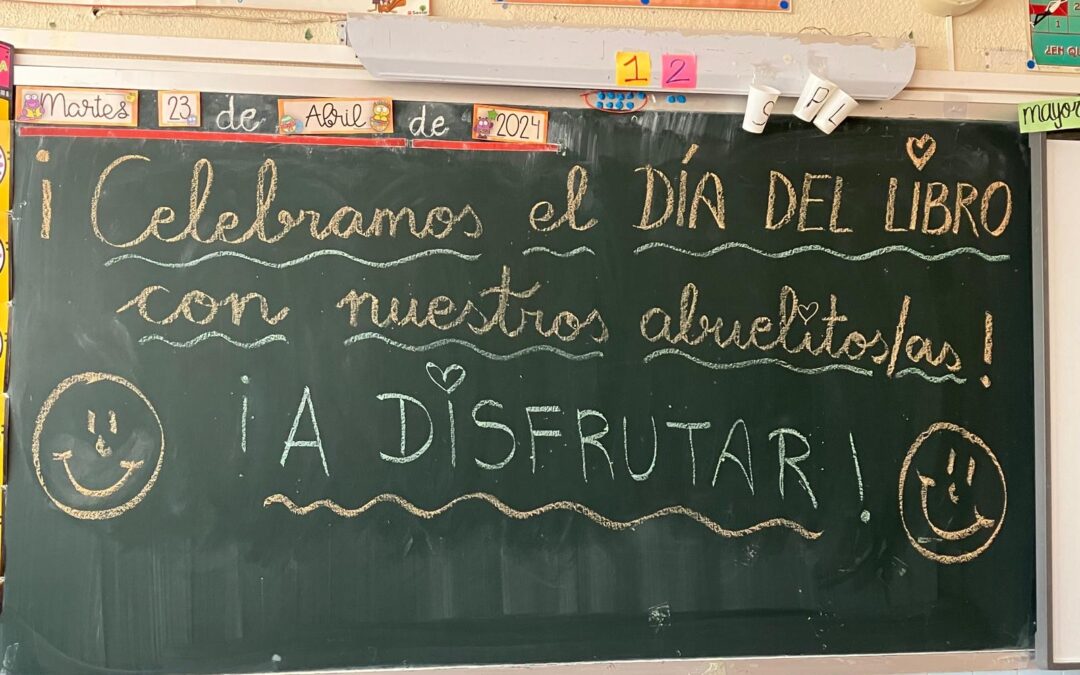 1 2
S P L
Martes 23 de Abril de 2024
mayor
¡Celebramos el DÍA DEL LIBRO
con nuestros abuelitos/as!
¡A DISFRUTAR!